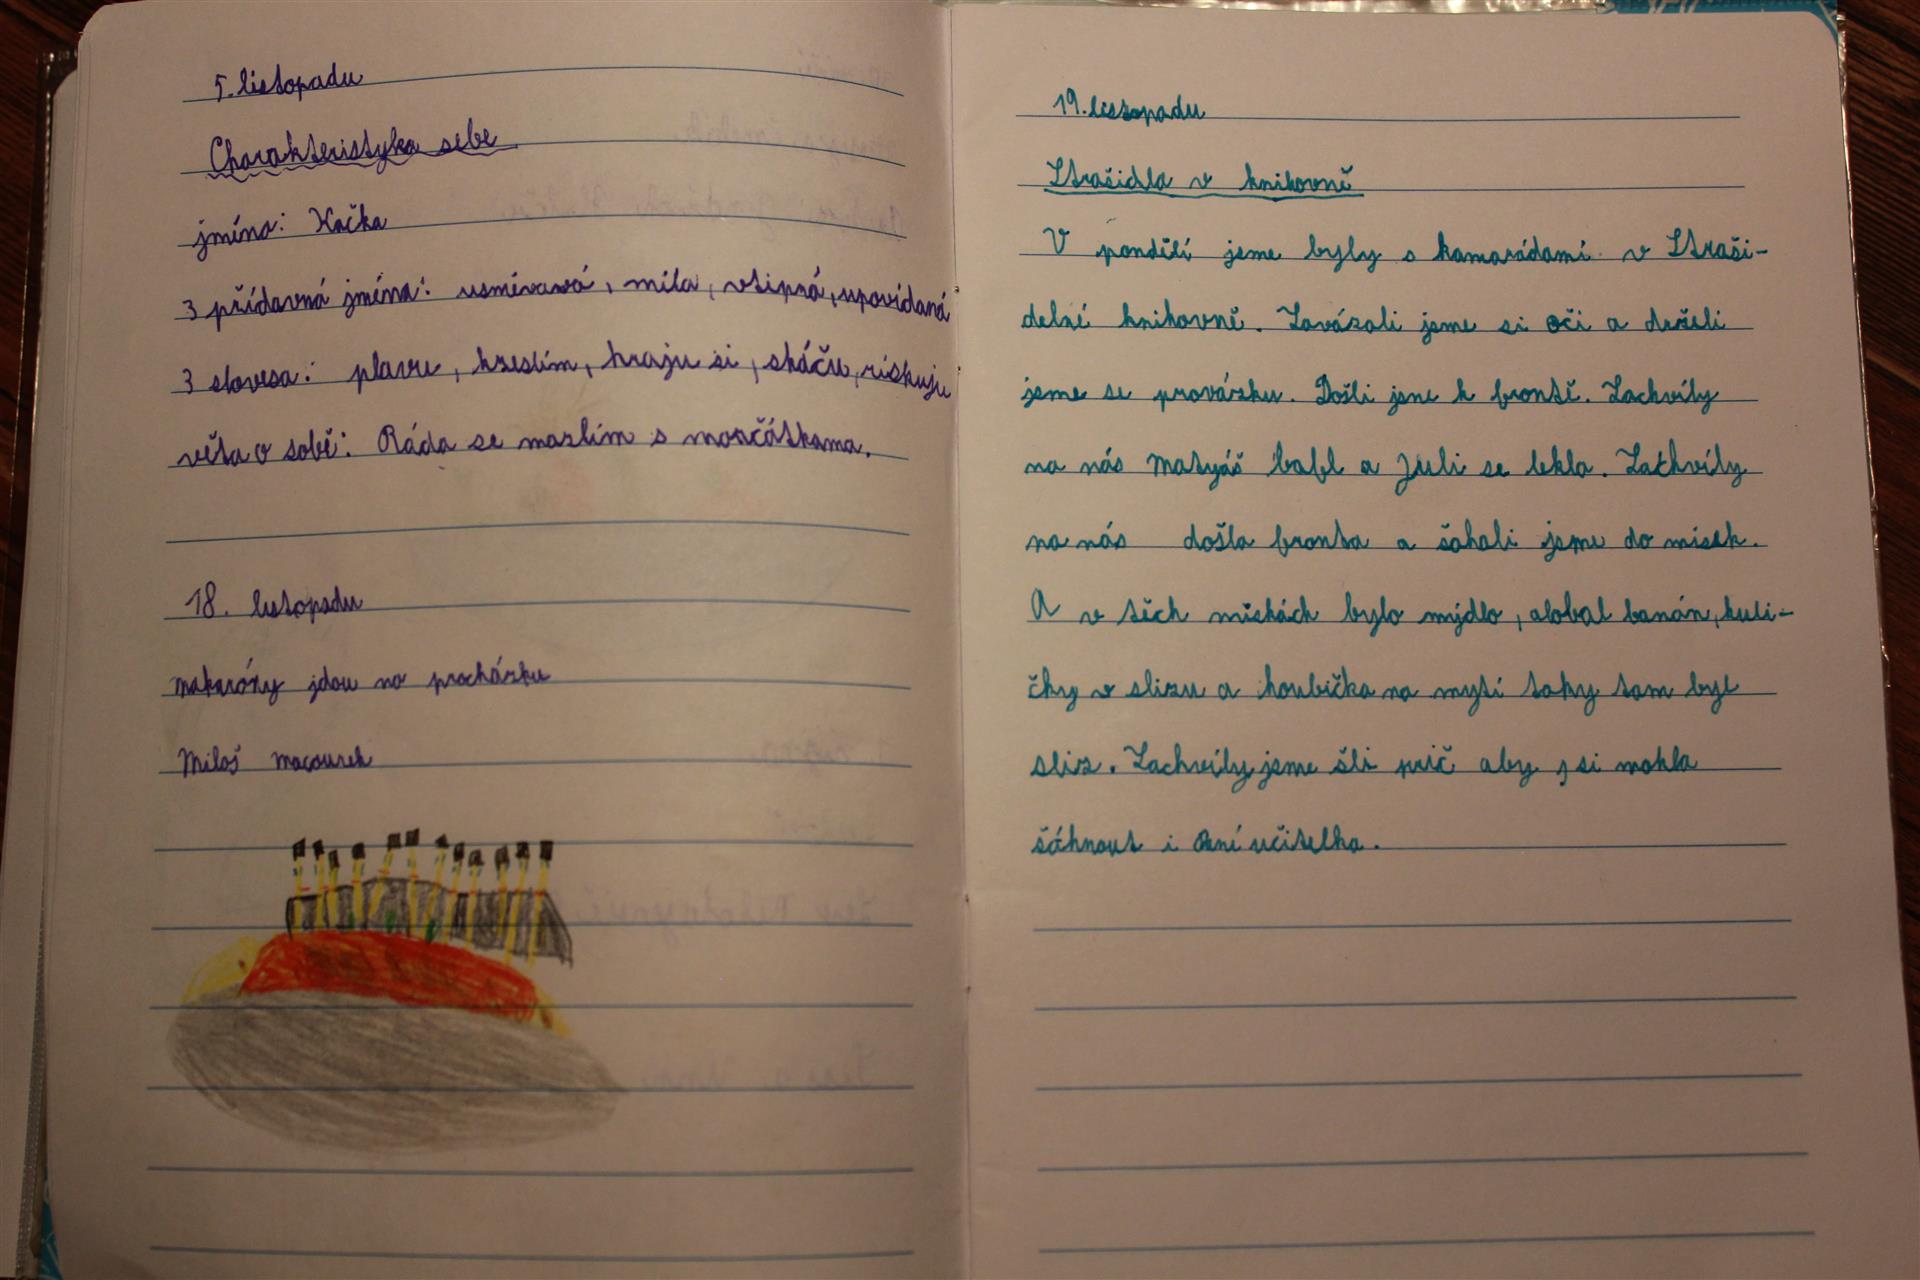 5. listopadu
Charakteristyka sebe
jméno: Kačka
3 přídavná jména: usměvavá, milá, vtipná, upovídaná
3 slovesa: plavu, kreslím, hraju si, skáču, riskuju
věta o sobě: Ráda se mazlím s morčátkama.
18. listopadu
makaróny jdou na procházku
Miloš macourek
19. listopadu
Strašidla v knihovně
V pondělí jsme byly s kamarádami v Straši-
delné knihovně. Zavázali jsme si oči a drželi
jsme se provázku. Došli jsme k frontě. Zachvíly
na nás Matyáš bafl a Juli se lekla. Zachvíly
na nás došla fronta a šahali jsme do misek.
A v těch miskách bylo mýdlo, alobal banán, kuli-
čky v slizu a houbička na mytí taky tam byl
sliz. Zachvíly jsme šli prič aby si mohla
šáhnout i paní učitelka.